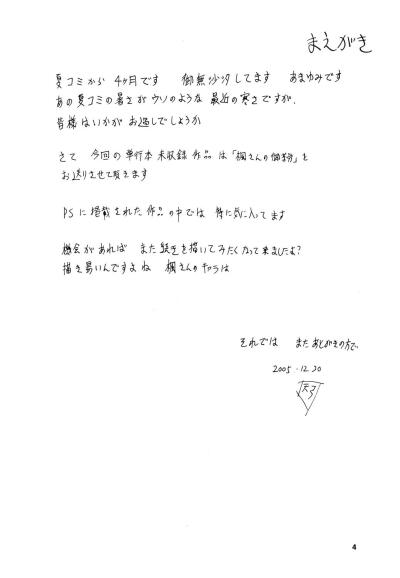 まえがき
夏コミから 4ヶ月です 御無沙汰してます あまゆみです
あの夏コミの暑さがウソのような 最近の寒さですが、
皆様はいかがお過しでしょうか
さて 今回の単行本未収録作品は「楓さんの御奉分」を
お送りさせて頂きます
PSに掲載された作品の中では 特に気に入ってます
機会があれば また続きを描いてみたくなって来ましたよ?
描き易いんですよね 楓さんのキャラは
それでは またあとがきの方で
2005.12.20
4